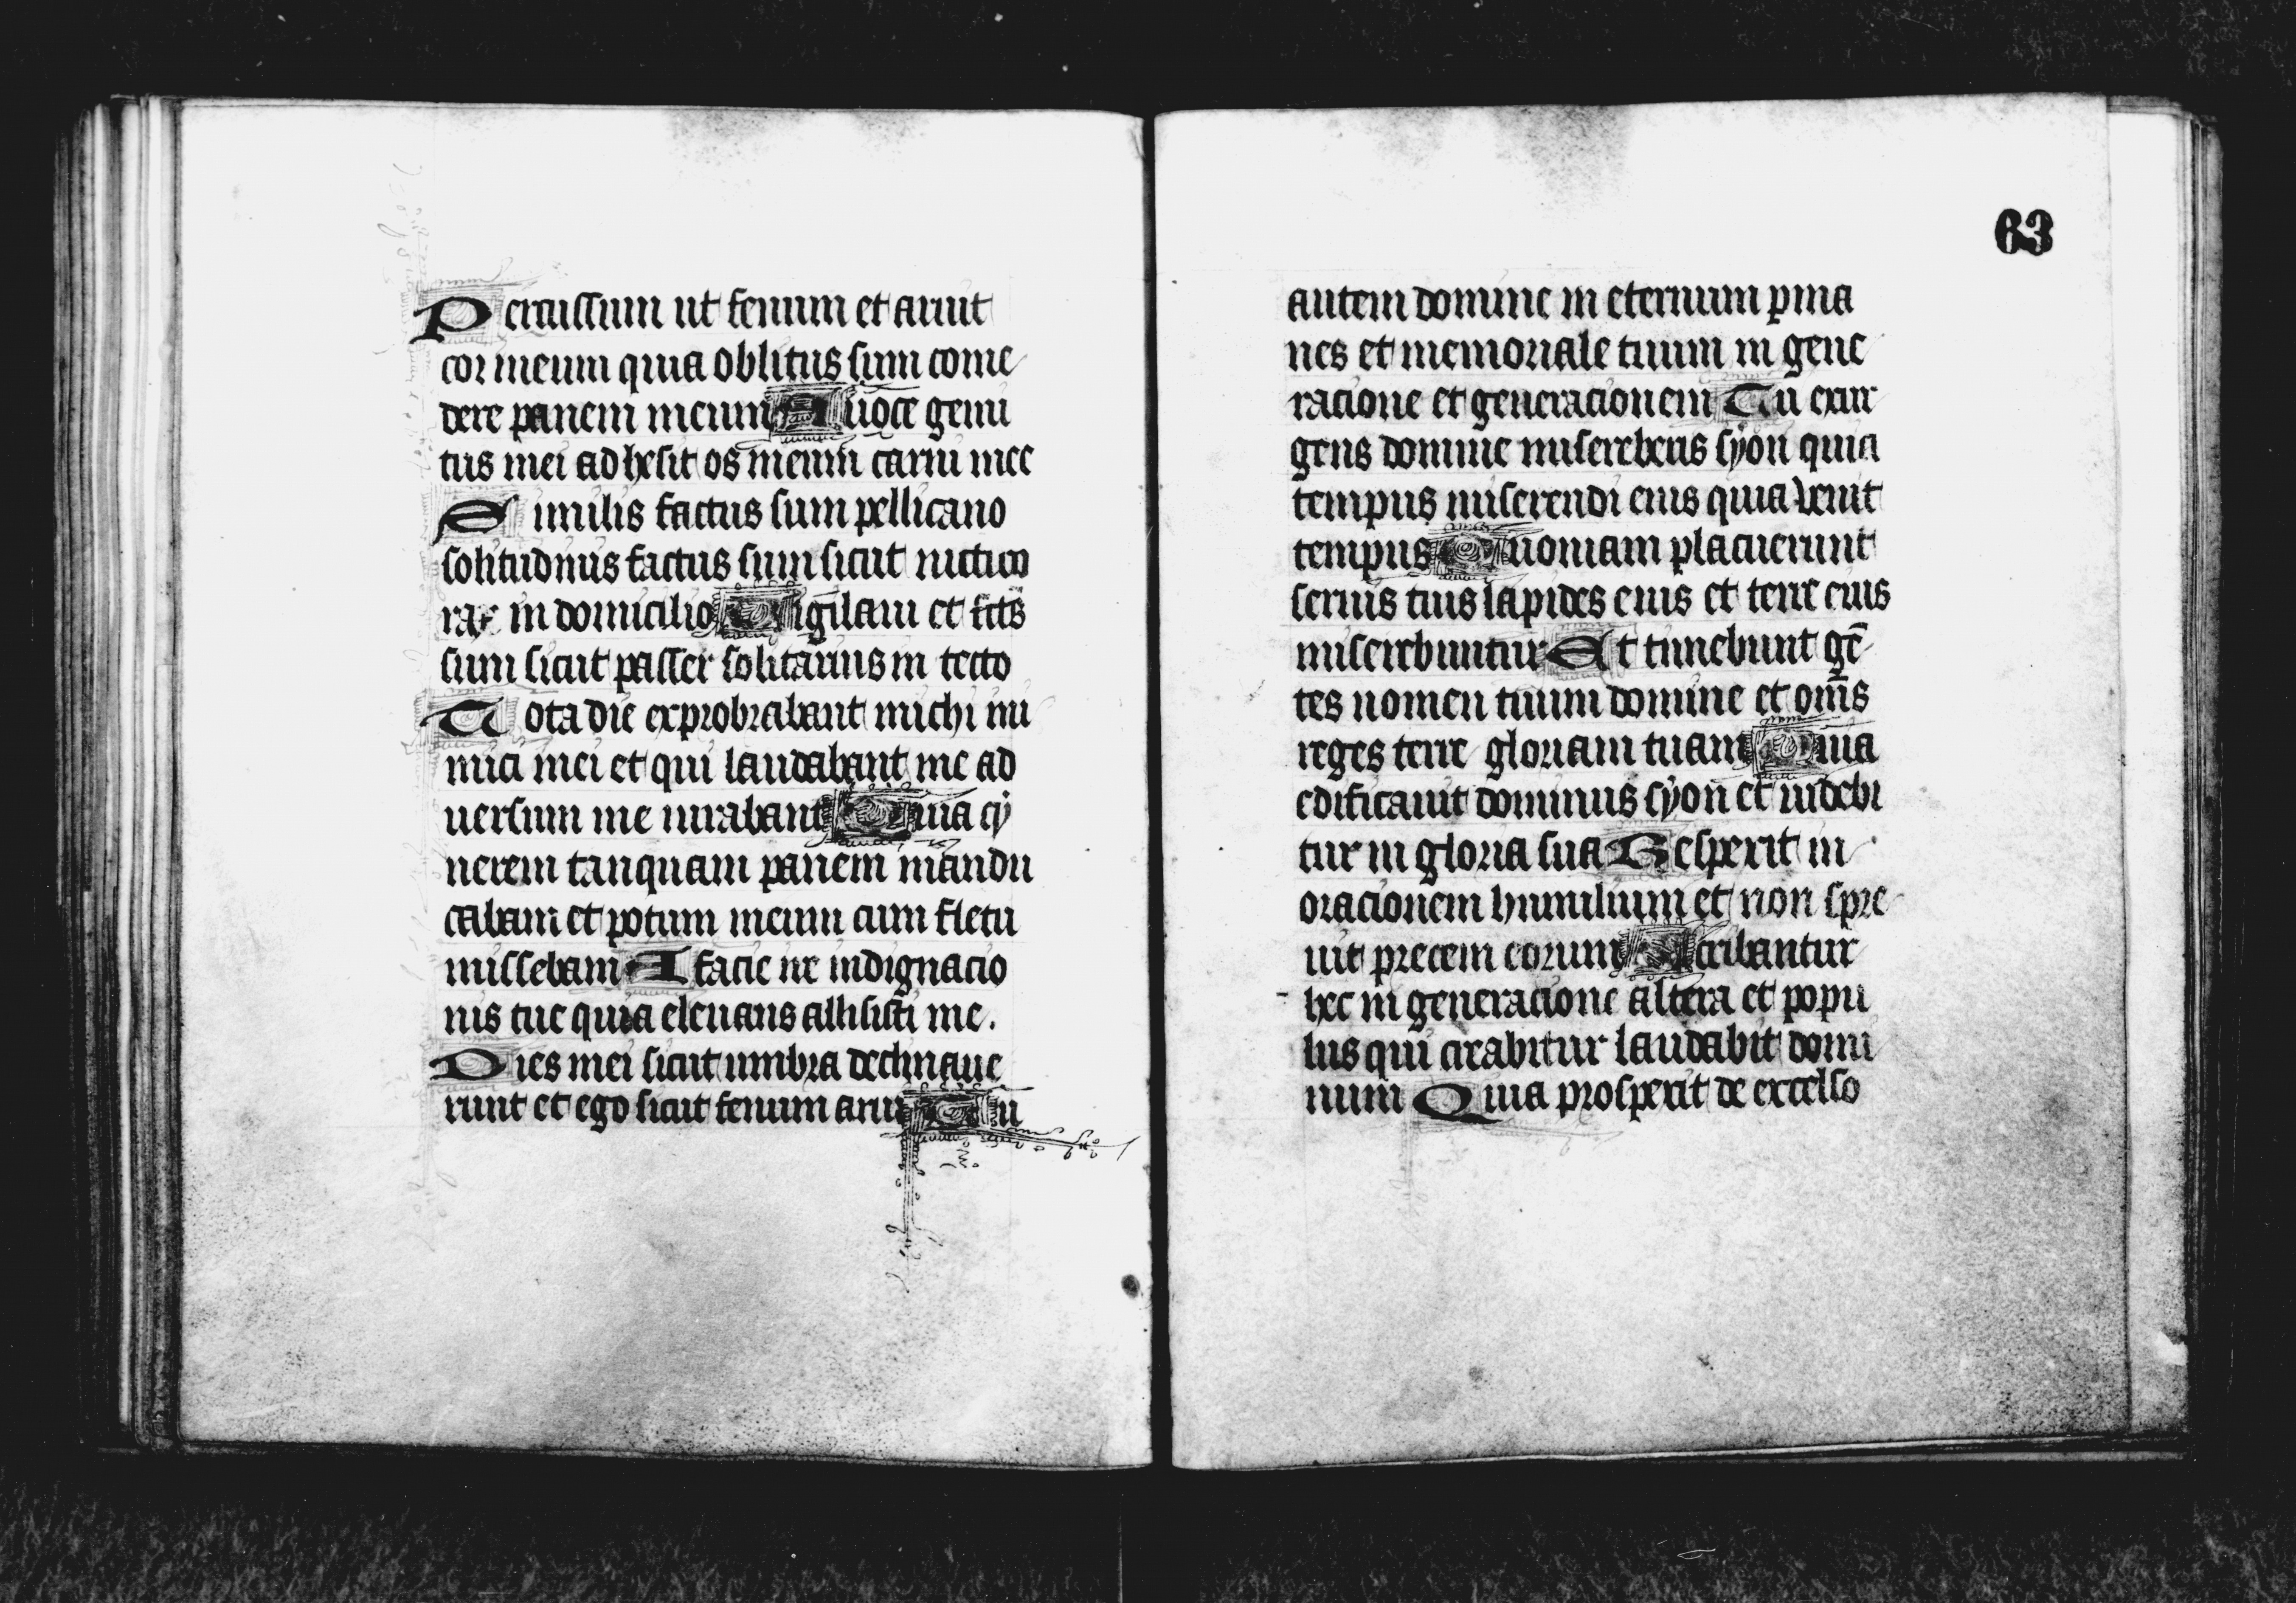 Percussum ut fenum et aruit
cor meum quia oblitus sum come
dere panem meum A uoce gemi
tus mei adhesit os meum carni mee
Similis factus sum pellicano
solitudinis factus sum sicut nicticо
rax in domicilio Vigilaui et fc̄ts
sum sicut passer solitarius in tecto
Tota die exprobrabant michi ini
mici mei et qui laudabant me ad
uersum me iurabant Quia cy
nerem tanquam panem mandu
cabam et potum meum cum fletu
missebam A facie ire indignacio
nis tue quia eleuans allisisti me.
Dies mei sicut umbra declinaue
runt et ego sicut fenum arui Tu
63
autem domine in eternum ꝑma
nes et memoriale tuum in gene
racione et generacionem Tu exur
gens domine misereberis syon quia
tempus miserendi eius quia venit
tempus Quoniam placuerunt
seruis tuis lapides eius et terre eius
miserebuntur Et timebunt gē
tes nomen tuum domine et om̄s
reges terre gloriam tuam Quia
edificauit dominus syon et uidebi
tur in gloria sua Resperit in
oracionem humilium et non spre
uit precem eorum Scribantur
hec in generacione altera et popu
lus qui crabitur laudabit domi
num Quia prosperit de excelso